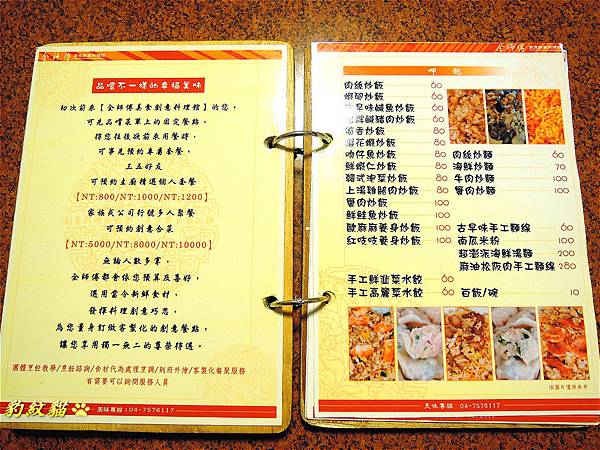 金師傅
品嚐不一樣的幸福美味
初次前來【金師傅美食創意料理館】的您，
可先品嚐菜單上的固定餐點，
待您往後欲前來用餐時，
可事先預約專屬套餐，
三五好友
可預約主廚精選個人套餐
【NT:800/NT:1000/NT:1200】
家族或公司行號多人聚餐
可預約創意合菜
【NT:5000/NT:8000/NT:10000】
無論人數多寡，
金師傅都會依您預算及喜好，
選用當令新鮮食材，
發揮料理創意巧思，
為您量身訂做客製花的創意餐點，
讓您享用獨一無二的尊榮待遇。
團體烹飪教學/烹飪諮詢/食材代為處理烹調/到府外燴/客製化餐聚服務
有需要可以詢問服務人員
美味專線：04-7576117
豹紋貓
金師傅
呷飽
肉絲炒飯 60
蝦仁炒飯 60
古早味鹹魚炒飯 60
招牌鹹豬肉炒飯 60
櫻花蝦炒飯 80
吻仔魚炒飯 80
鮮蝦仁炒飯 80
韓式泡菜炒飯 80
上湯雞腿肉炒飯 80
蟹肉炒飯 100
鮮鮭魚炒飯 100
歐麻麻養身炒飯 100
紅吱吱養身炒飯 100
肉絲炒麵 60
海鮮炒麵 70
牛肉炒麵 100
蟹肉炒麵 100
古早味手工麵線 60
南瓜米粉 100
超澎派海鮮湯麵 200
麻油松阪肉手工麵線 280
手工鮮韭菜水餃 60
手工高麗菜水餃 60
白飯/碗 10
※圖片僅供參考
美味專線 04-7576117